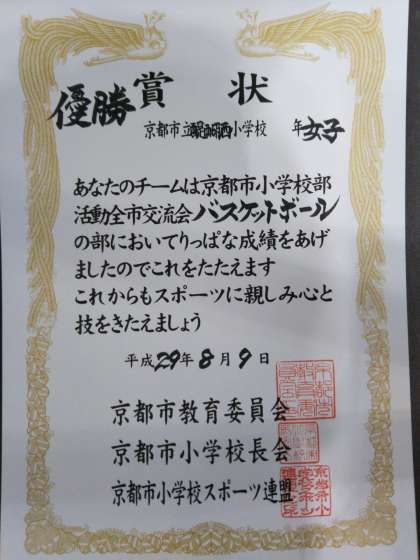 賞状
優勝
京都市立醍醐西小学校 年女子
あなたのチームは京都市小学校部
活動全市交流会バスケットボール
の部においてりっぱな成績をあげ
ましたのでこれをたたえます
これからもスポーツに親しみ心と
技をきたえましょう
平成29年8月9日
京都市教育委員会
京都市小学校長会
京都市小学校スポーツ連盟